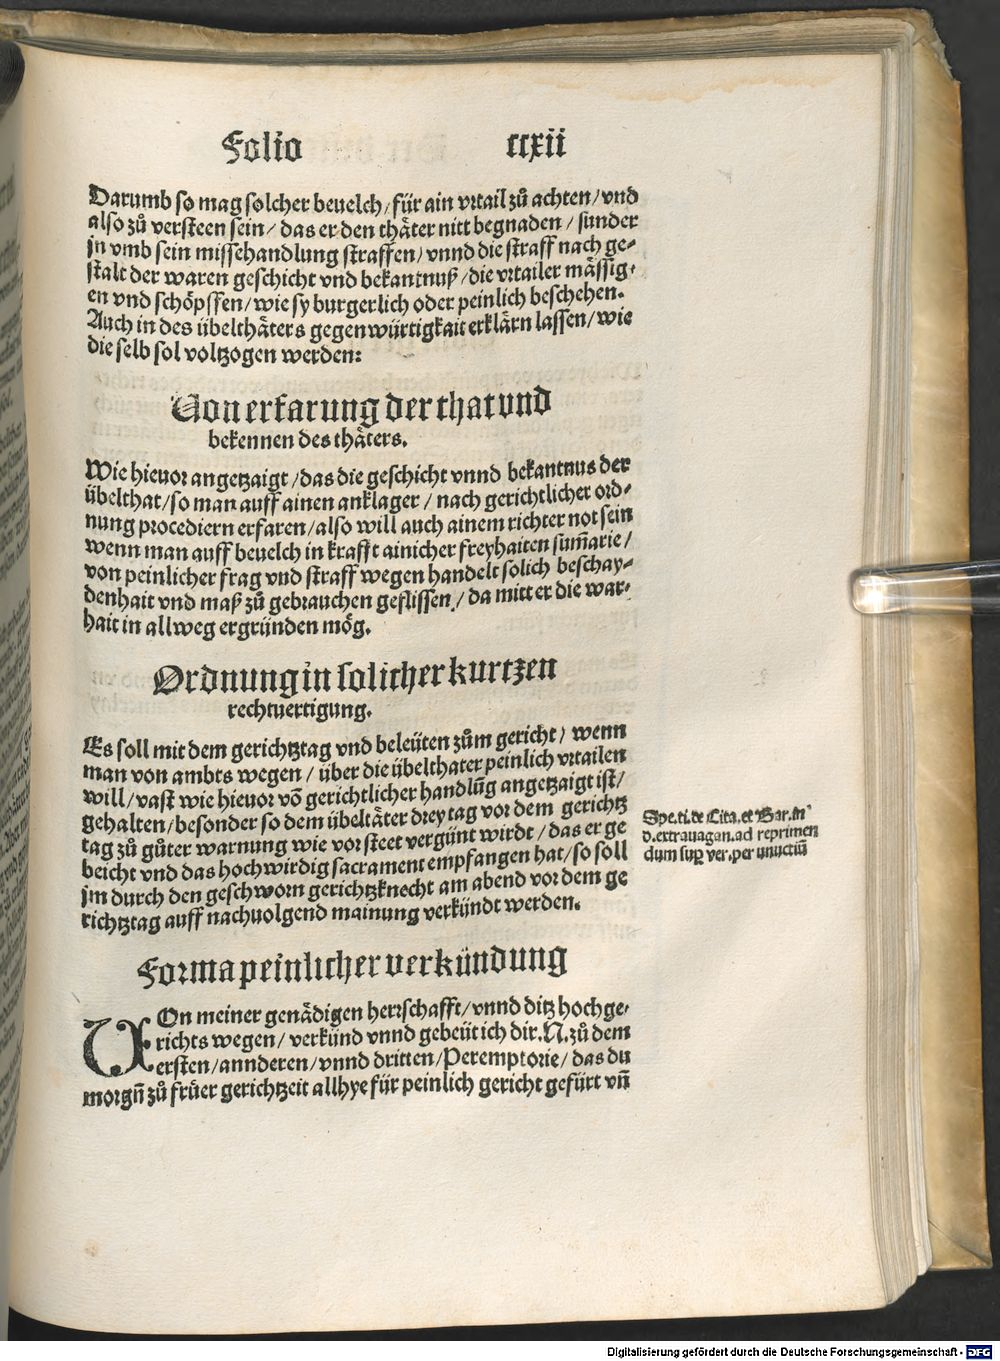 Folio ccxii
Darumb so mag solcher beuelch / für ain vrtail zů achten / vnd
also zů versteen sein / das er den thäter nitt begnaden / sunder
jn vmb sein missehandlung straffen / vnnd die straff nach ge-
stalt der waren geschicht vnd bekantnuß / die vrtailer mässig-
en vnd schöpffen / wie sy burgerlich oder peinlich beschehen.
Auch in des übelthäters gegenwürtigkait erklärn lassen / wie
die selb sol voltzogen werden:
Von erfarung der that vnd
bekennen des thäters.
Wie hieuor angetzaigt / das die geschicht vnnd bekantnus der
übelthat / so man auff ainen anklager / nach gerichtlicher ord-
nung procediern erfaren / also will auch ainem richter not sein
wenn man auff beuelch in krafft ainicher freyhaiten sum̃arie /
von peinlicher frag vnd straff wegen handelt solich beschay-
denhait vnd maß zů gebrauchen geflissen / da mitt er die war-
hait in allweg ergründen mög.
Ordnung in solicher kurtzen
rechtuertigung.
Es soll mit dem gerichtztag vnd beleüten zům gericht / wenn
man von ambts wegen / über die übelthater peinlich vrtailen
will / vast wie hieuor võ gerichtlicher handlũg angetzaigt ist /
gehalten / besonder so dem übeltäter drey tag vor dem gerichtz
tag zů gůter warnung wie vor steet vergünt wirdt / das er ge
beicht vnd das hochwirdig sacrament empfangen hat / so soll
jm durch den geschworn gerichtzknecht am abend vor dem ge
richtztag auff nachuolgend mainung verkündt werden.
Spe. ti. de Cita. et Bar. in
d. extrauagan. ad reprimen
dum sup ver. per
Forma peinlicher verkündung
VOn meiner genädigen herrschafft / vnnd ditz hochge-
richts wegen / verkünd vnnd gebeüt ich dir. N. zů dem
ersten / annderen / vnnd dritten / Peremptorie / das du
morgñ zů frůer gerichtzeit allhye für peinlich gericht gefürt vñ
Digitalisierung gefördert durch die Deutsche Forschungsgemeinschaft - DFG